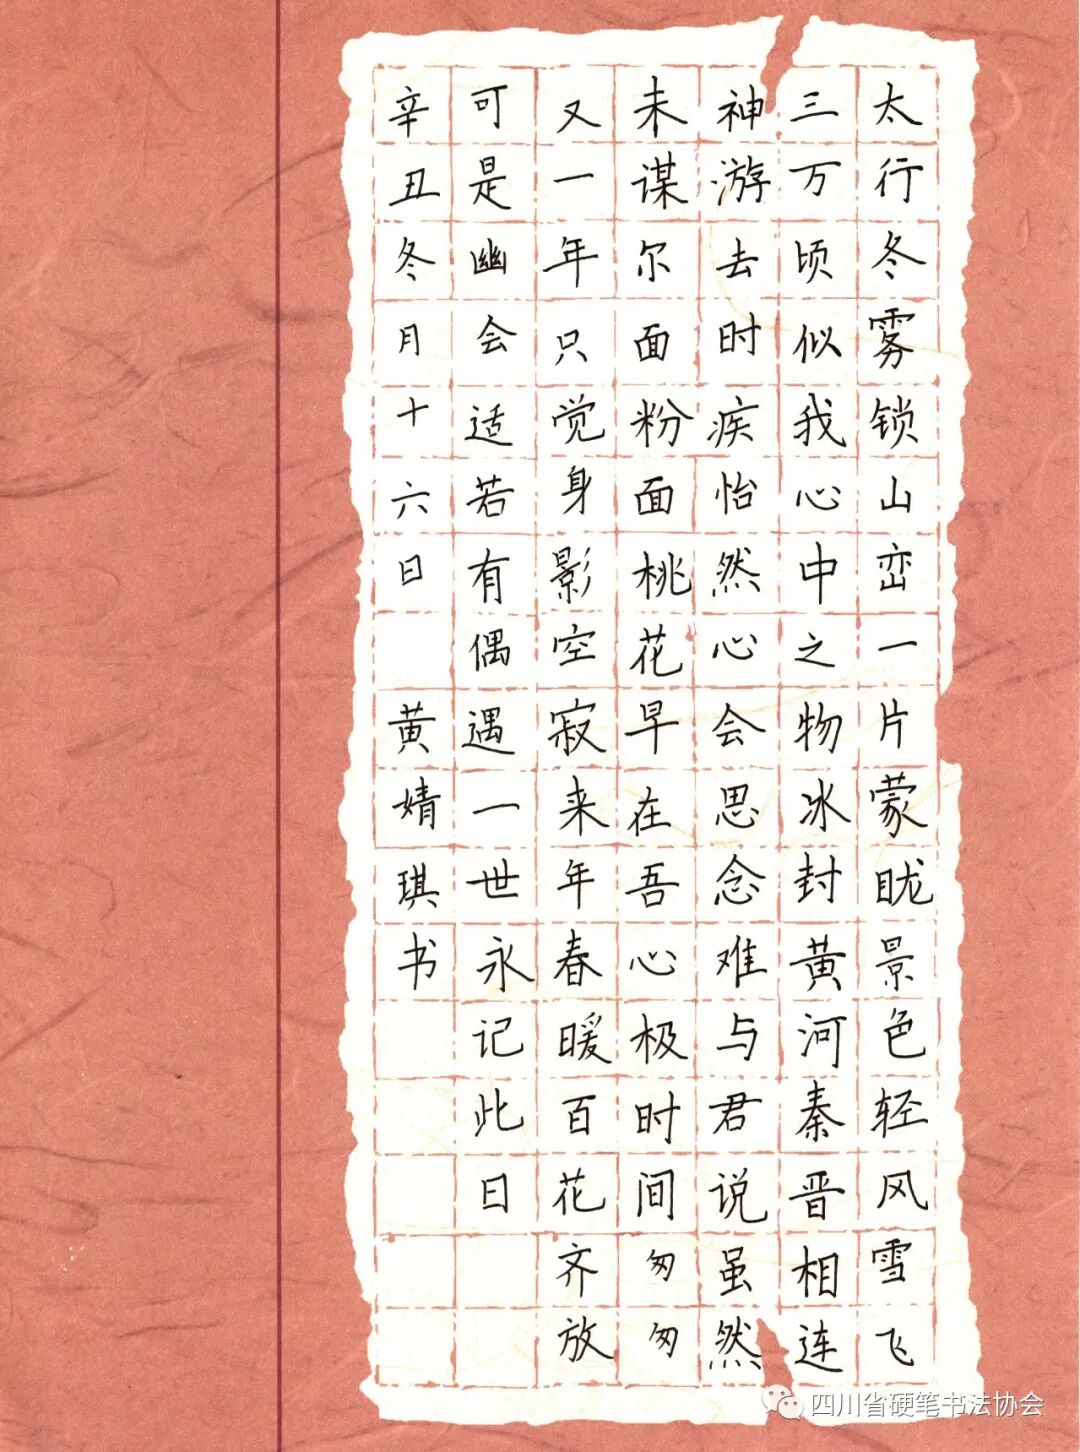 太行冬雾锁山峦一片蒙眬景色轻风雪飞
三万顷似我心中之物冰封黄河秦晋相连
神游去时疾怡然心会思念难与君说虽然
未谋尔面粉面桃花早在吾心极时间匆匆
又一年只觉身影空寂来年春暖百花齐放
可是幽会适若有偶遇一世永记此日
辛丑冬月十六日 黄婧琪书
四川省硬笔书法协会